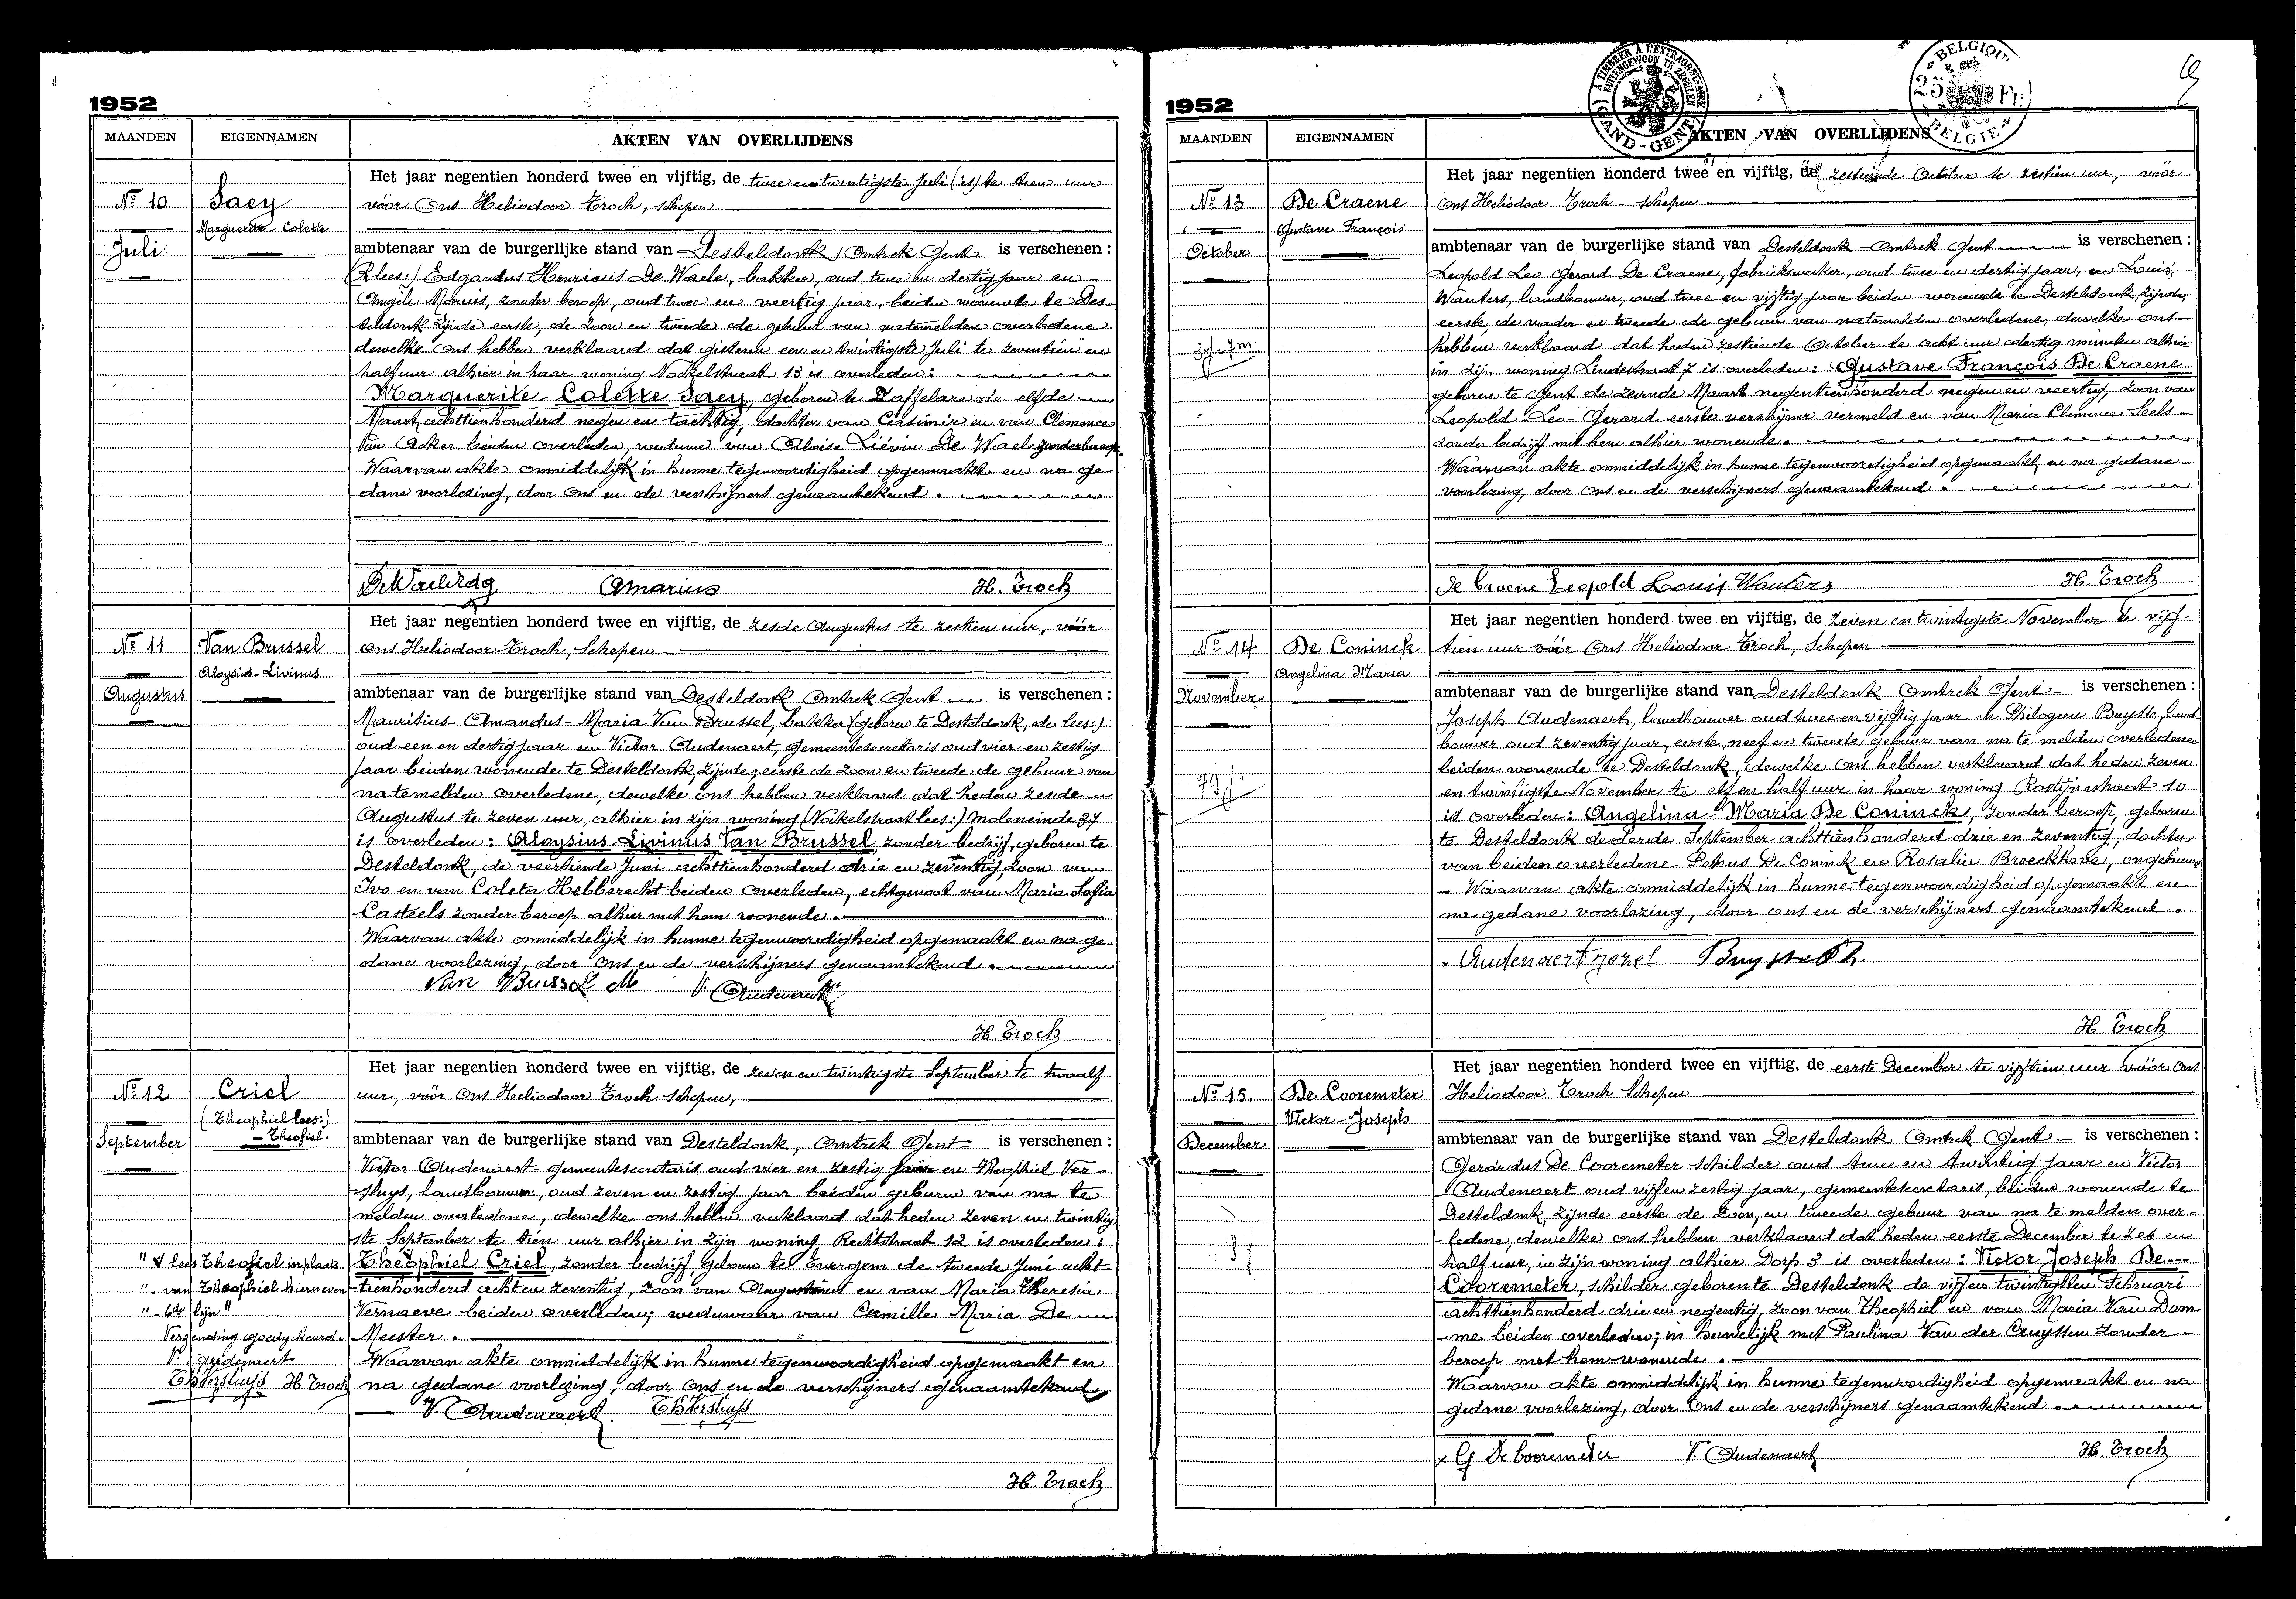 1952
MAANDEN EIGENNAMEN AKTEN VAN OVERLIJDENS
Nº 10
Juli
Saey
Marguerite - Colette
Het jaar negentien honderd twee en vijftig, de twee en twintigste Juli (is) te tien uur
vóór Ons Heliodoor Troch, schepen
ambtenaar van de burgerlijke stand van Desteldonk, Omtrek Gent is verschenen :
(lees:) Edgardus Henricus De Waele, bakker, oud twee en dertig jaar en
Angèle Marius, zonder beroep, oud twee en veertig jaar, beiden wonende te Des-
teldonk zijnde eerste, de zoon en tweede de gebuur van natemelden overledene
dewelke Ons hebben verklaard dat gisteren een en twintigste Juli te zeventien en
half uur alhier in haar woning Nockelstraat 13 is overleden:
Marguerite - Colette Saey, geboren te Zaffelare de elfde
Maart achttienhonderd negen en tachtig, dochter van Casimir en van Clemence
Van Acker beiden overleden, weduwe van Aloise Liévin De Waele zonder beroep.
Waarvan akte onmiddelijk in hunne tegenwoordigheid opgemaakt en na ge-
dane voorlezing, door Ons en de verschijners genaamtekend.
De Waele Edg A Marius H. Troch
Nº 11
Augustus
Van Brussel
Aloysius - Livinus
Het jaar negentien honderd twee en vijftig, de zesde Augustus te zestien uur, vóór
Ons Heliodoor Troch, Schepen
ambtenaar van de burgerlijke stand van Desteldonk Omtrek Gent is verschenen :
Mauritius - Amandus - Maria Van Brussel, bakker (geboren te Desteldonk, de lees:)
oud een en dertig jaar en Victor Audenaert, gemeentesecretaris oud vier en zestig
jaar beiden wonende te Desteldonk, zijnde; eerste de zoon en tweede de gebuur van
natemelden overledene, dewelke ons hebben verklaard dat heden zesde
Augustus te zeven uur, alhier in zijn woning (Nockelstraat lees:) moleneinde 37
is overleden: Aloysius Livinus Van Brussel zonder bedrijf, geboren te
Desteldonk, de veertiende Juni achttienhonderd drie en zeventig, zoon van
Ivo en van Coleta Hebberecht beiden overleden, echtgenoot van Maria Sofia
Casteels zonder beroep alhier met hem wonende.
Waarvan akte onmiddelijk in hunne tegenwoordigheid opgemaakt en na ge-
dane voorlezing, door Ons en de verschijners genaamtekend.
Van Brussel M V. Audenaert
H Troch
Nº 12
September
Criel
(Theophiel lees:)
- Theofiel.
Het jaar negentien honderd twee en vijftig, de zeven en twintigste September te twaalf
uur, vóór Ons Heliodoor Troch schepen,
ambtenaar van de burgerlijke stand van Desteldonk, Omtrek Gent is verschenen :
Victor Audenaert gemeentesecretaris oud vier en zestig jaar en Theophiel Ver-
sluys, landbouwer, oud zeven en zestig jaar beiden geburen van na te
melden overledene, dewelke ons hebben verklaard dat heden zeven en twintig-
ste September te tien uur alhier in zijn woning Rechtstraat 12 is overleden:
Theophiel Criel, zonder bedrijf, geboren te Evergem de tweede Juni acht-
tienhonderd acht en zeventig, zoon van Augustinus en van Maria Theresia
Vernaeve beiden overleden; weduwaar van Camille Maria De
Meester.
Waarvan akte onmiddelijk in hunne tegenwoordigheid opgemaakt en
na gedane voorlezing, door Ons en de verschijners genaamtekend
" V lees Theofiel in plaats
"- van Theophiel hierneven
"- 6de lijn"
Verzending goedgekeurd -
V. Audenaert
Th Versluys H. Troch
V. Audenaert. Th Versluys
H. Troch
1952
A TIMBRER A L'EXTRAORDINAIRE
BUITENGEWOON TE ZEGELEN
GAND-GENT
BELGIQUE
25 Fr.
BELGIE
MAANDEN EIGENNAMEN AKTEN VAN OVERLIJDENS
Nº 13
October
De Craene
Gustave François
Het jaar negentien honderd twee en vijftig, de zestiende October te zestien uur, vóór
Ons Heliodoor Troch - schepen
ambtenaar van de burgerlijke stand van Desteldonk - Omtrek Gent is verschenen :
Leopold Leo Gerard De Craene, fabriekswerker, oud twee en dertig jaar, en Louis
Wauters, landbouwer, oud twee en vijftig jaar beiden wonende te Desteldonk, zijnde,
eerste, de vader en tweede de gebuur van natemelden overledene, dewelke ons
hebben verklaard dat heden zestiende October te acht uur dertig minuten alhier
in zijn woning Lindestraat 7 is overleden: Gustave François De Craene
geboren te Gent de zevende Maart negentienhonderd negen en veertig, zoon van
Leopold - Leo - Gerard eerste verschijner vermeld en van Maria Clemence Seels
zonder bedrijf met hem alhier wonende.
Waarvan akte onmiddelijk in hunne tegenwoordigheid opgemaakt en na gedane
voorlezing, door Ons en de verschijners genaamtekend.
De Craene Leopold Louis Wauters H. Troch
Nº 14
November
De Coninck
Angelina Maria
Het jaar negentien honderd twee en vijftig, de zeven en twintigste November te vijf-
tien uur vóór Ons Heliodoor Troch, Schepen
ambtenaar van de burgerlijke stand van Desteldonk Omtrek Gent - is verschenen :
Joseph Audenaert, landbouwer oud twee en vijftig jaar en Philogeen Buysse, land-
bouwer oud zeventig jaar, eerste neef en tweede gebuur van na te melden overledene
beiden wonende te Desteldonk, dewelke Ons hebben verklaard dat heden zeven
en twintigste November te elf en half uur in haar woning Rostijnestraat 10
is overleden: Angelina - Maria De Coninck, zonder beroep, geboren
te Desteldonk de derde September achttienhonderd drie en zeventig, dochter
van beiden overledene Petrus De Coninck en Rosalie Broeckhove, ongehuwd
- Waarvan akte onmiddelijk in hunne tegenwoordigheid opgemaakt en
na gedane voorlezing, door ons en de verschijners genaamtekend.
Audenaert Jozef Buysse Ph.
H Troch
Nº 15.
December
De Cooremeter
Victor - Joseph
Het jaar negentien honderd twee en vijftig, de eerste December te vijftien uur vóór Ons
Heliodoor Troch Schepen
ambtenaar van de burgerlijke stand van Desteldonk Omtrek Gent - is verschenen :
Gerardus De Cooremeter schilder oud twee en twintig jaar en Victor
Audenaert oud vijf en zestig jaar, gemeentesecretaris, beiden wonende te
Desteldonk, zijnde eerste de zoon, en tweede gebuur van na te melden over-
ledene, dewelke ons hebben verklaard dat heden eerste December te zes en
half uur, in zijn woning alhier Dorp 3 is overleden: Victor Joseph De
Cooremeter, schilder geboren te Desteldonk de vijf en twintigsten Februari
achttienhonderd drie en negentig, zoon van Theophiel en van Maria Van Dam-
me beiden overleden; in huwelijk met Paulina Van der Cruyssen zonder
beroep met hem wonende.
Waarvan akte onmiddelijk in hunne tegenwoordigheid opgemaakt en na
gedane voorlezing, door Ons en de verschijners genaamtekend.
G De Cooremeter V. Audenaert H. Troch